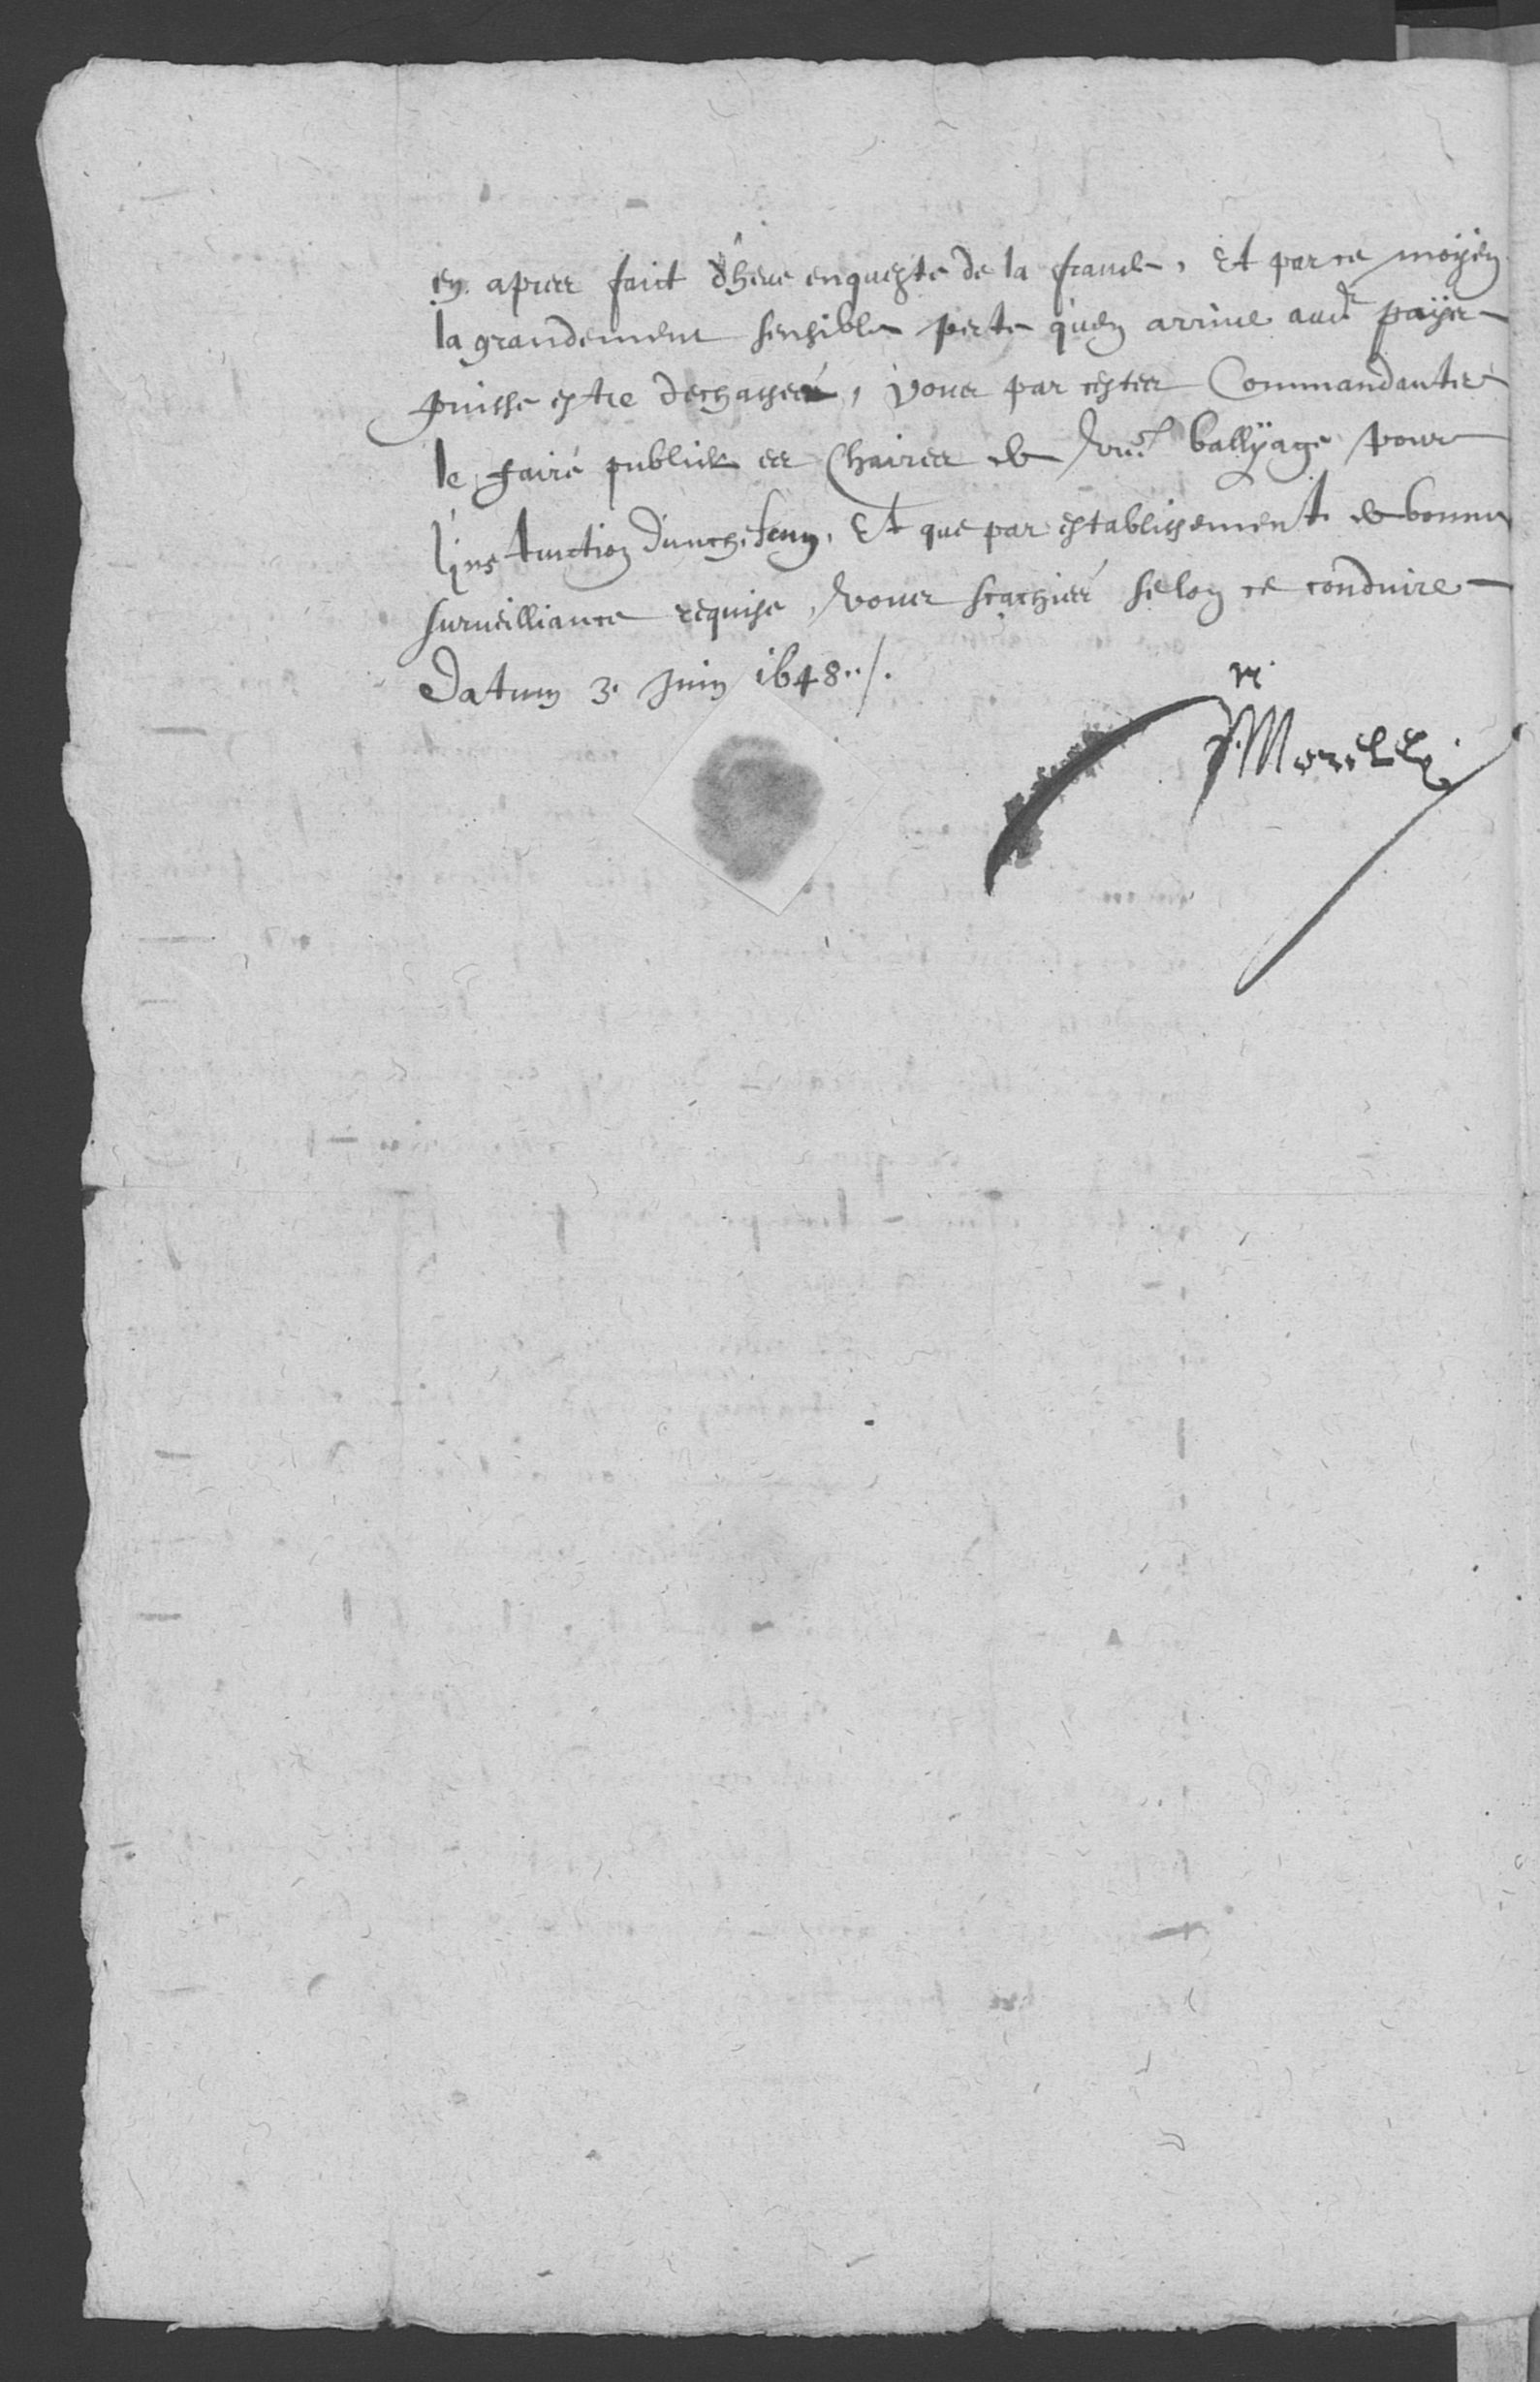 en apres faict d'heue enqueste de la fraude, Et par ce moyen
la grandement sensible perte qu'en arrive aud. payis
puisse estre dechassee, vous par cestes Commandantes
le faire publier es Chaires de vre. ballyage pour
l'instruction d'ung chescung, Et que par establissement de bonne
surveilliance requise, vous scachies selon ce conduire
Datum 3. Juin 1648../.